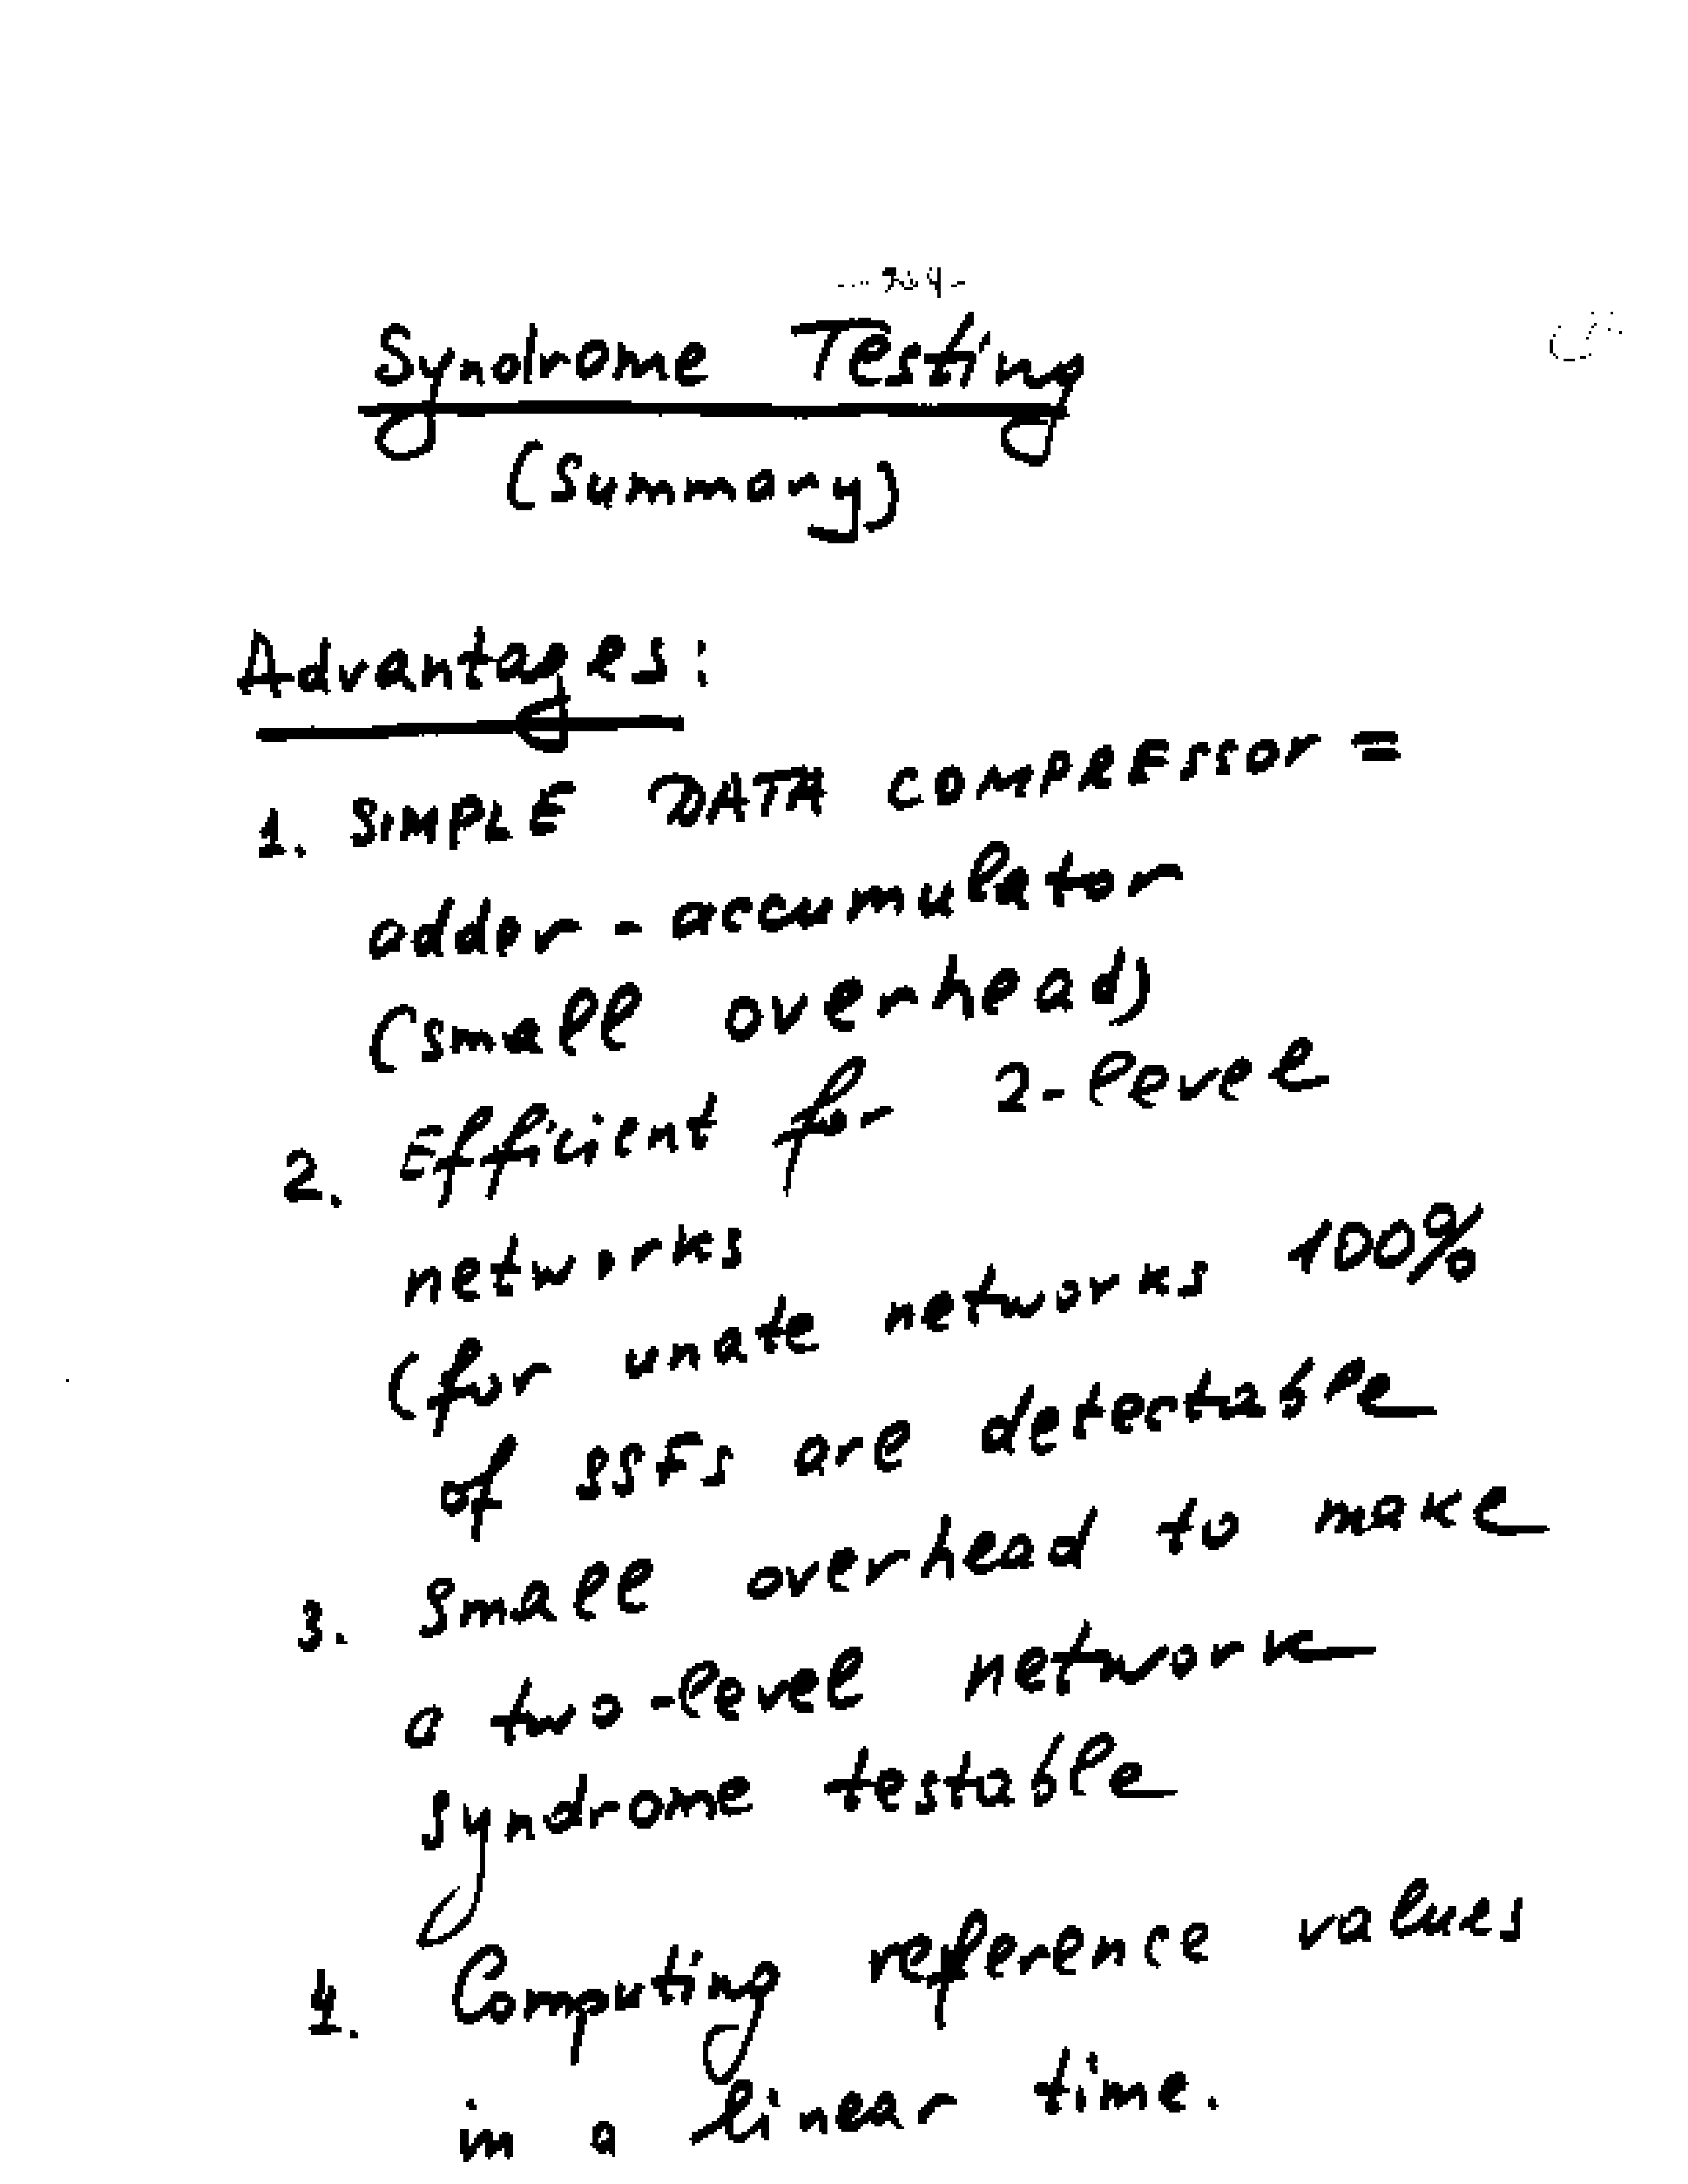 Syndrome Testing
(Summary)
Advantages:
1. SIMPLE DATA COMPRESSOr =
adder - accumulator
(small overhead)
2. Efficient for 2-level
networks
(for unate networks 100%
of SSFs are detectable
3. Small overhead to make
a two-level network
syndrome testable
4. Computing reference values
in a linear time.